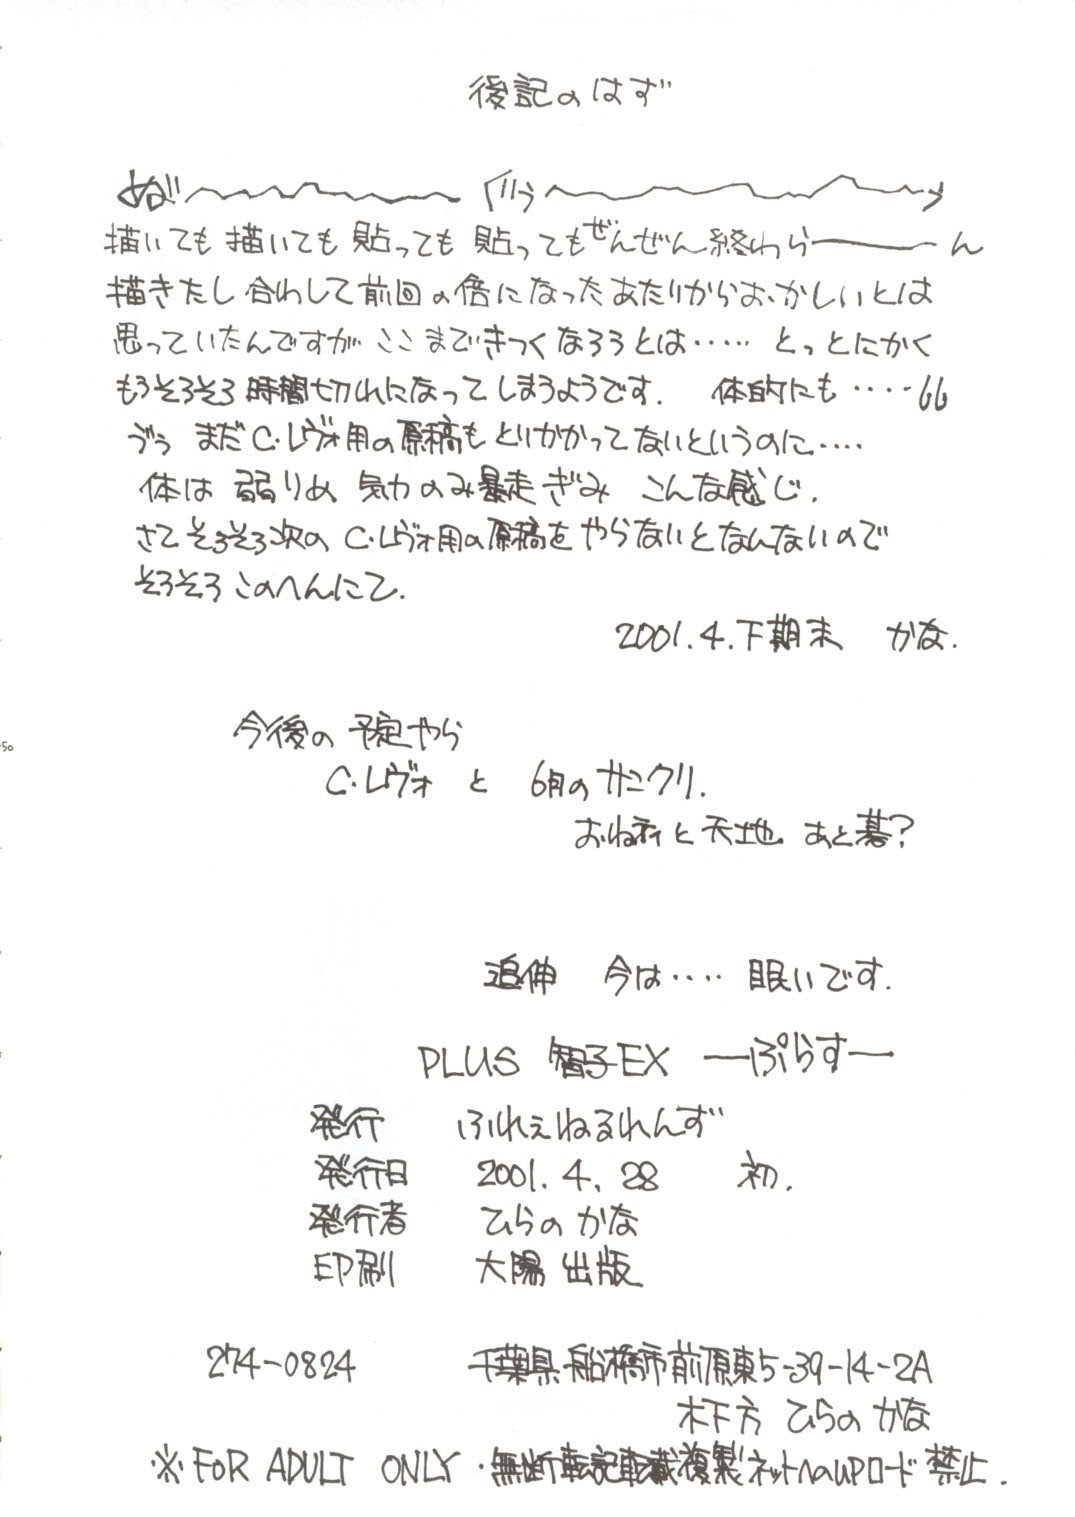 後記のはず
ぬぉ!!〜〜〜〜 ぐぅ〜〜〜〜
描いても描いても貼っても貼ってもぜんぜん終わら――――ん
描きたし合わして前回の倍になったあたりからおかしいとは
思っていたんですが ここまできつくなろうとは・・・・・ とっとにかく
もうそろそろ時間切れになってしまうようです. 体的にも ・・・・
づぅ まだC・レヴォ用の原稿もとりかかってないというのに・・・・
体は弱りめ 気力のみ暴走ぎみ こんな感じ.
さてそろそろ次のC・レヴォ用の原稿をやらないとなんないので
そろそろこのへんにて.
2001.4.下期末 かな.
今後の予定やら
C・レヴォ と 6月のサンクリ.
おねティと天地 あと碁?
追伸 今は・・・・ 眠いです.
PLUS 智子EX ―ぷらす―
発行 ふれぇねるれんず
発行日 2001.4.28 初.
発行者 ひらの かな
印刷 大陽出版
274-0824 千葉県船橋市前原東5-39-14-2A
木下方 ひらの かな
※FOR ADULT ONLY・無断転記転載複製ネットへのUPロード禁止.
50